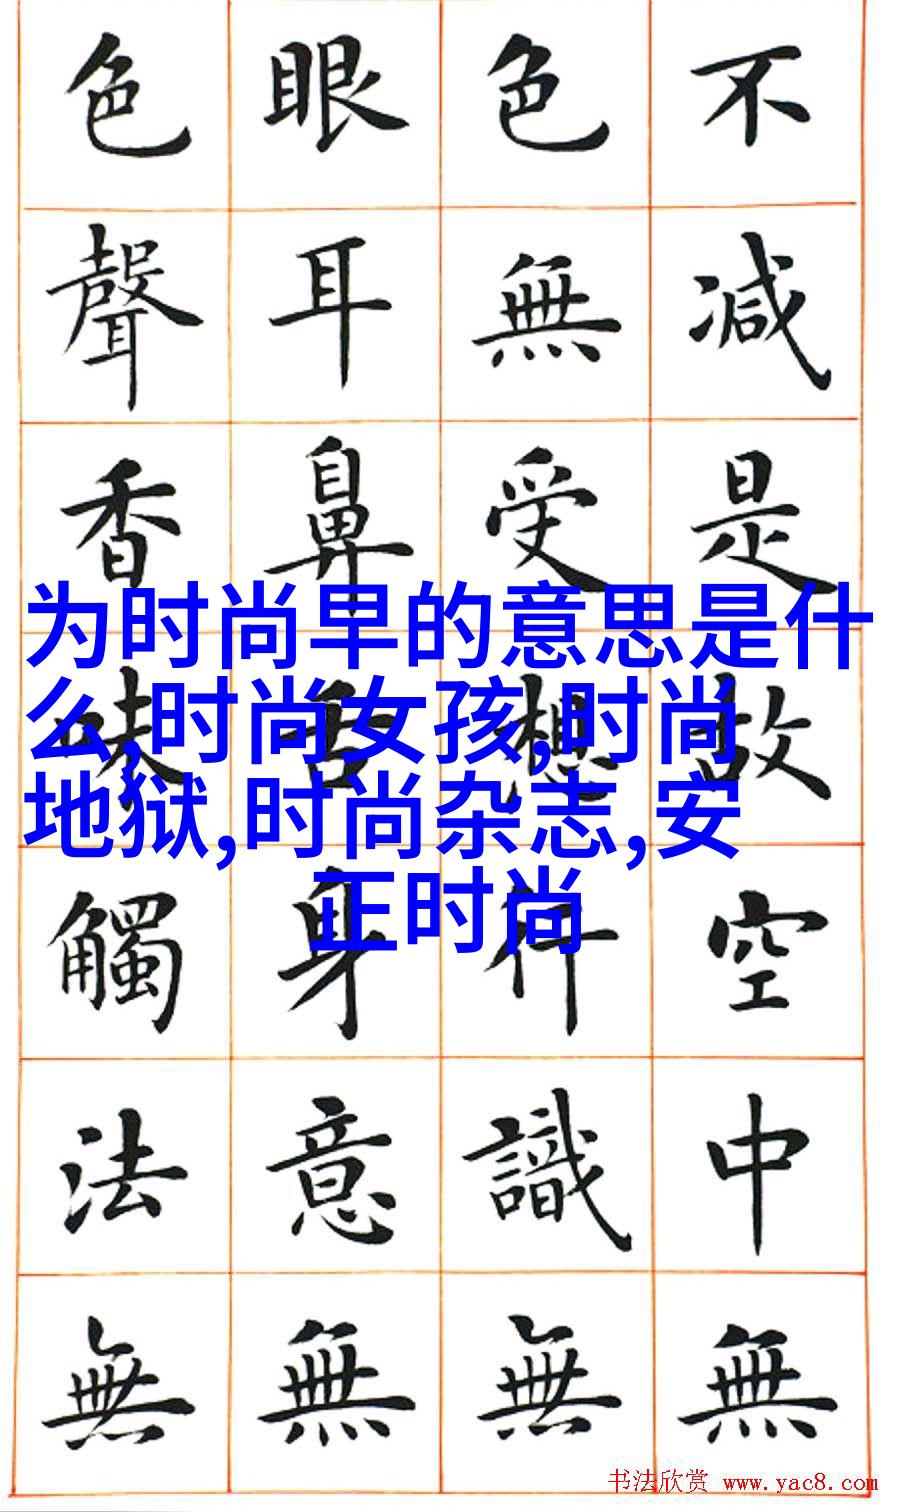 不减是故空中無
色無受想行識無
眼耳鼻舌身意無
色聲香味觸法無
为时尚早的意思是什
么,时尚女孩,时尚
地狱,时尚杂志,安
正时尚
书法欣赏 www.yac8.com